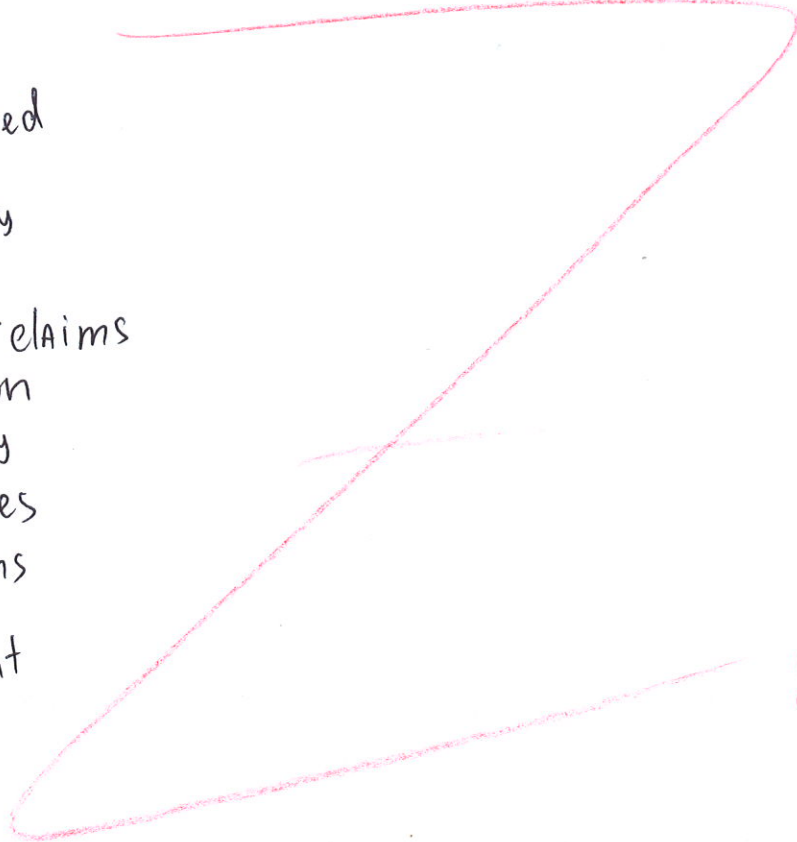 ed
y
claims
on
y
es
ns
t